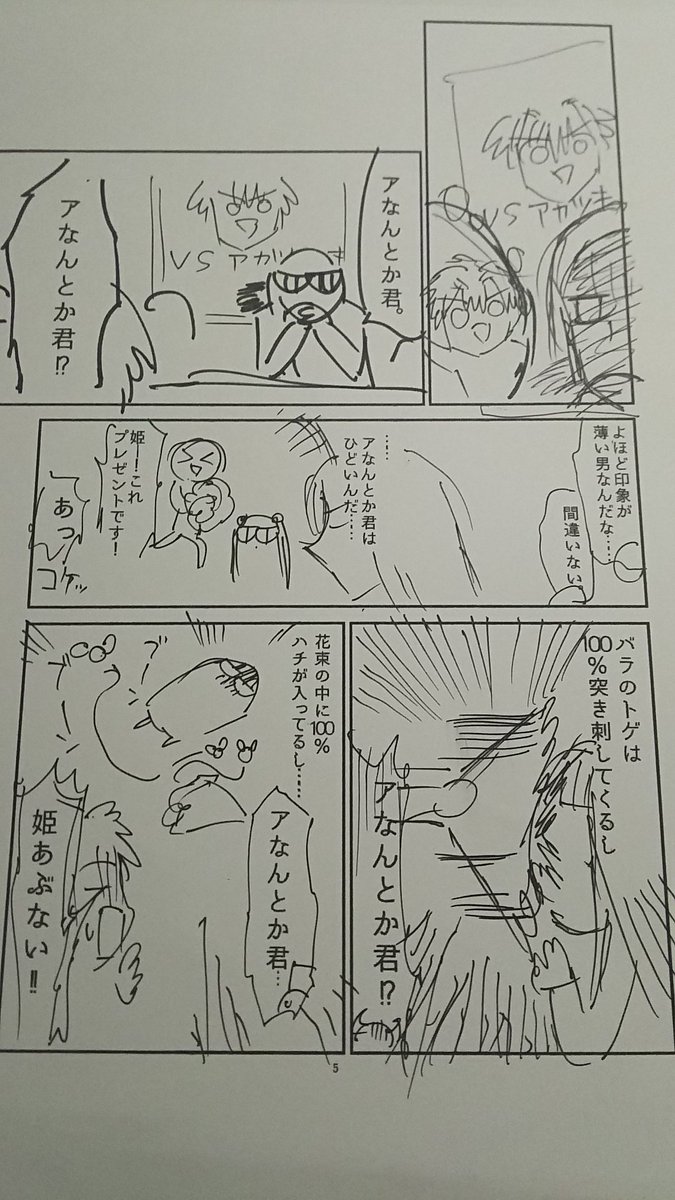 VS アカツキ
アなんとか君。
VS アカツキ
アなんとか君!?
よほど印象が
薄い男なんだな……
間違いない
……
アなんとか君は
ひどいんだ……
姫ー!これ
プレゼントです!
あっ
コケッ
バラのトゲは
100%突き刺してくるし
アなんとか君!?
花束の中に100%
ハチが入ってるし……
ブー
ブー
アなんとか君…
姫あぶない!!
5